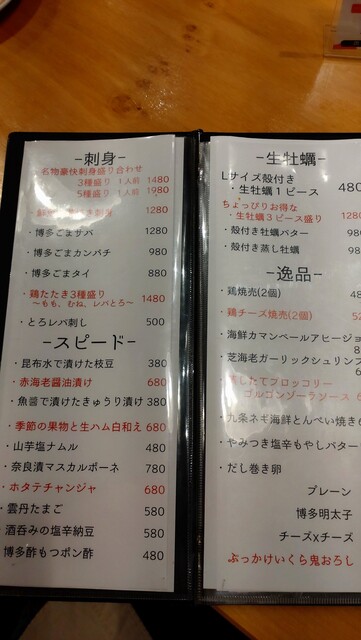 -刺身-
・名物豪快刺身盛り合わせ
3種盛り 1人前 1480
5種盛り 1人前 1980
き刺身 1280
・博多ごまサバ 1280
・博多ごまカンパチ 980
・博多ごまタイ 880
・鶏たたき3種盛り
～もも、むね、レバとろ～ 1480
・とろレバ刺し 500
-スピード-
・昆布水で漬けた枝豆 380
・赤海老醤油漬け 680
・魚醤で漬けたきゅうり漬け 380
・季節の果物と生ハム白和え 680
・山芋塩ナムル 480
・奈良漬マスカルポーネ 780
・ホタテチャンジャ 680
・雲丹たまご 580
・酒呑みの塩辛納豆 580
博多酢もつポン酢 480
-生牡蠣-
Lサイズ殻付き
・生牡蠣1ピース 480
ちょっぴりお得な
・生牡蠣3ピース盛り 1280
・殻付き牡蠣バター 980
・殻付き蒸し牡蠣 980
-逸品-
・鶏焼売(2個) 480
・鶏チーズ焼売(2個) 520
・海鮮カマンベールアヒージョ
8
・芝海老ガーリックシュリンプ
6
したてブロッコリー
ゴルゴンゾーラソース 6
・九条ネギ海鮮とんぺい焼き
・やみつき塩辛もやしバター
・だし巻き卵
プレーン
博多明太子
チーズxチーズ
ぶっかけいくら鬼おろし